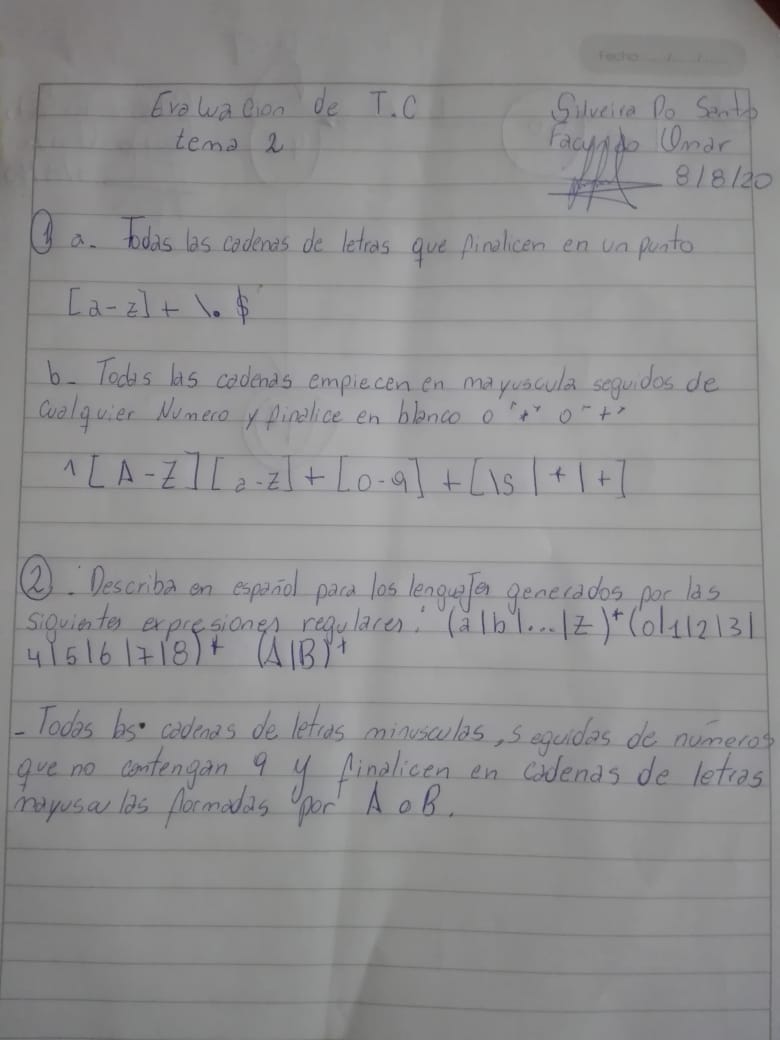 Fecha
Evaluacion de T.C
Silveira Do Santo
tema 2
Facundo Omar
8/8/20
① a. Todas las cadenas de letras que finalicen en un punto
[a-z]+ \. $
b- Todas las cadenas empiecen en mayuscula seguidos de
cualquier Numero y finalice en blanco o "+" o "+"
^[A-Z][a-z]+[0-9]+[\s|+|+]
② . Describa en español para los lenguajes generados por las
siguientes expresiones regulares: (a|b|...|z)+(0|1|2|3|
4|5|6|7|8)+ (A|B)+
- Todas las cadenas de letras minusculas, seguidas de numeros
que no contengan 9 y finalicen en cadenas de letras
mayusculas formadas por A o B.